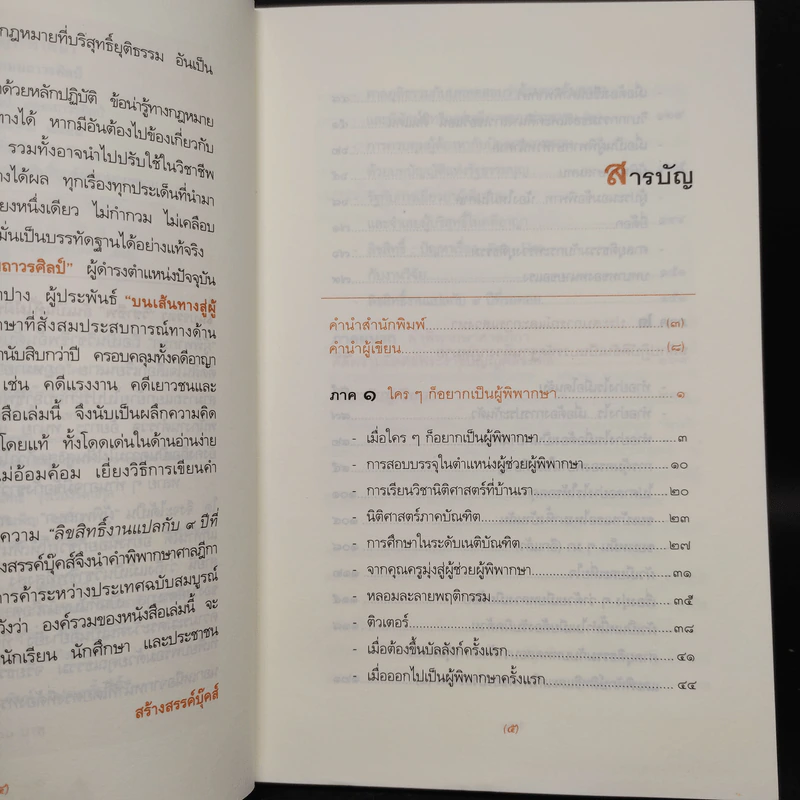 กฎหมายที่บริสุทธิ์ยุติธรรม อันเป็น
ด้วยหลักปฏิบัติ ข้อน่ารู้ทางกฎหมาย
ทางได้ หากมีอันต้องไปข้องเกี่ยวกับ
รวมทั้งอาจนำไปปรับใช้ในวิชาชีพ
างได้ผล ทุกเรื่องทุกประเด็นที่นำมา
ยงหนึ่งเดียว ไม่กำกวม ไม่เคลือบ
มั่นเป็นบรรทัดฐานได้อย่างแท้จริง
ถาวรศิลป์” ผู้ดำรงตำแหน่งปัจจุบัน
ำปาง ผู้ประพันธ์ “บนเส้นทางสู่ผู้
าษาที่สั่งสมประสบการณ์ทางด้าน
านับสิบกว่าปี ครอบคลุมทั้งคดีอาญา
เช่น คดีแรงงาน คดีเยาวชนและ
สือเล่มนี้ จึงนับเป็นผลึกความคิด
โดยแท้ ทั้งโดดเด่นในด้านอ่านง่าย
ไม่อ้อมค้อม เยี่ยงวิธีการเขียนคำ
ความ “ลิขสิทธิ์งานแปลกับ ๙ ปีที่
งสรรค์บุ๊คส์จึงนำคำพิพากษาศาลฎีกา
การค้าระหว่างประเทศฉบับสมบูรณ์
วังว่า องค์รวมของหนังสือเล่มนี้ จะ
นักเรียน นักศึกษา และประชาชน
สร้างสรรค์บุ๊คส์
สารบัญ
คำนำสำนักพิมพ์ (๓)
คำนำผู้เขียน (๘)
ภาค ๑ ใคร ๆ ก็อยากเป็นผู้พิพากษา ๑
- เมื่อใคร ๆ ก็อยากเป็นผู้พิพากษา ๓
- การสอบบรรจุในตำแหน่งผู้ช่วยผู้พิพากษา ๑๐
- การเรียนวิชานิติศาสตร์ที่บ้านเรา ๒๐
- นิติศาสตร์ภาคบัณฑิต ๒๓
- การศึกษาในระดับเนติบัณฑิต ๒๗
- จากคุณครูมุ่งสู่ผู้ช่วยผู้พิพากษา ๓๑
- หลอมละลายพฤติกรรม ๓๕
- ติวเตอร์ ๓๘
- เมื่อต้องขึ้นบัลลังก์ครั้งแรก ๔๑
- เมื่อออกไปเป็นผู้พิพากษาครั้งแรก ๔๔
(๕)